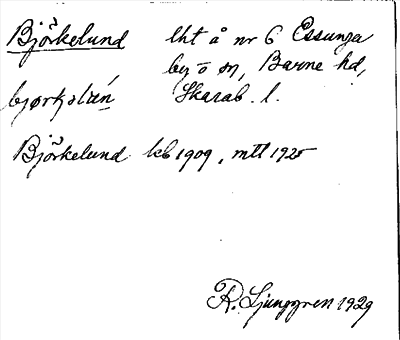 Björkelund lht å nr 6 Essunga
by o sn, Barne hd,
Skarab. l.
Björkelund kb 1909, mtl 1925
R. Ljunggren 1929